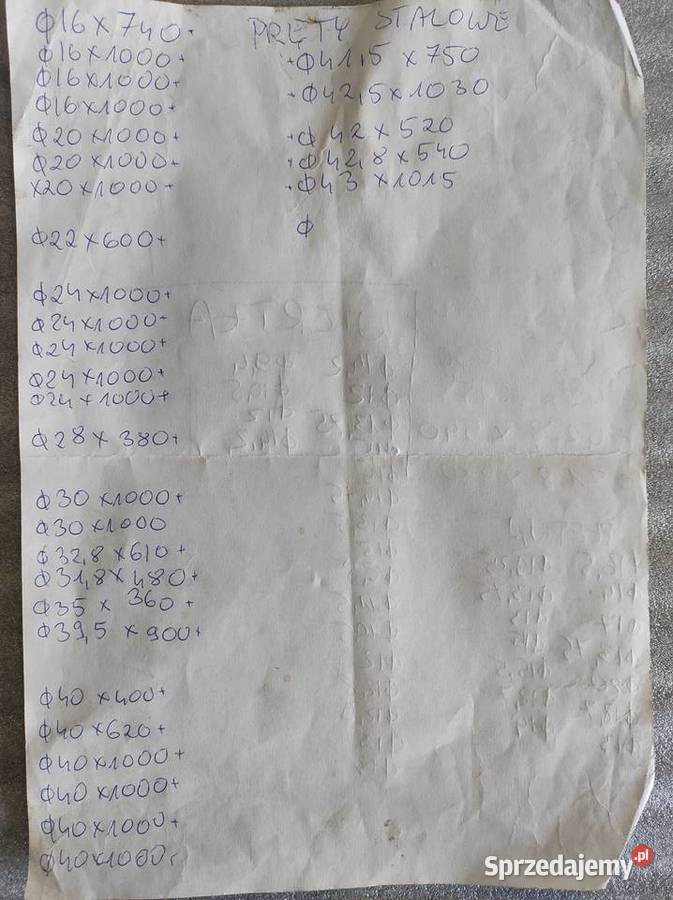 PRĘTY STALOWE
φ16 x 740.
φ16 x 1000+
φ16 x 1000+
φ16 x 1000+
φ20 x 1000+
φ20 x 1000+
x20 x 1000+
φ22 x 600+
φ24 x 1000+
φ24 x 1000+
φ24 x 1000+
φ24 x 1000+
φ24 x 1000+
φ28 x 380+
φ30 x 1000+
φ30 x 1000
φ32,8 x 610+
φ31,8 x 480+
φ35 x 360+
φ39,5 x 900+
φ40 x 400+
φ40 x 620+
φ40 x 1000+
φ40 x 1000+
φ40 x 1000+
φ40 x 1000+
+φ41,5 x 750
+φ42,5 x 1030
+φ42 x 520
+φ42,8 x 540
+φ43 x 1015
φ
Sprzedajemy.pl